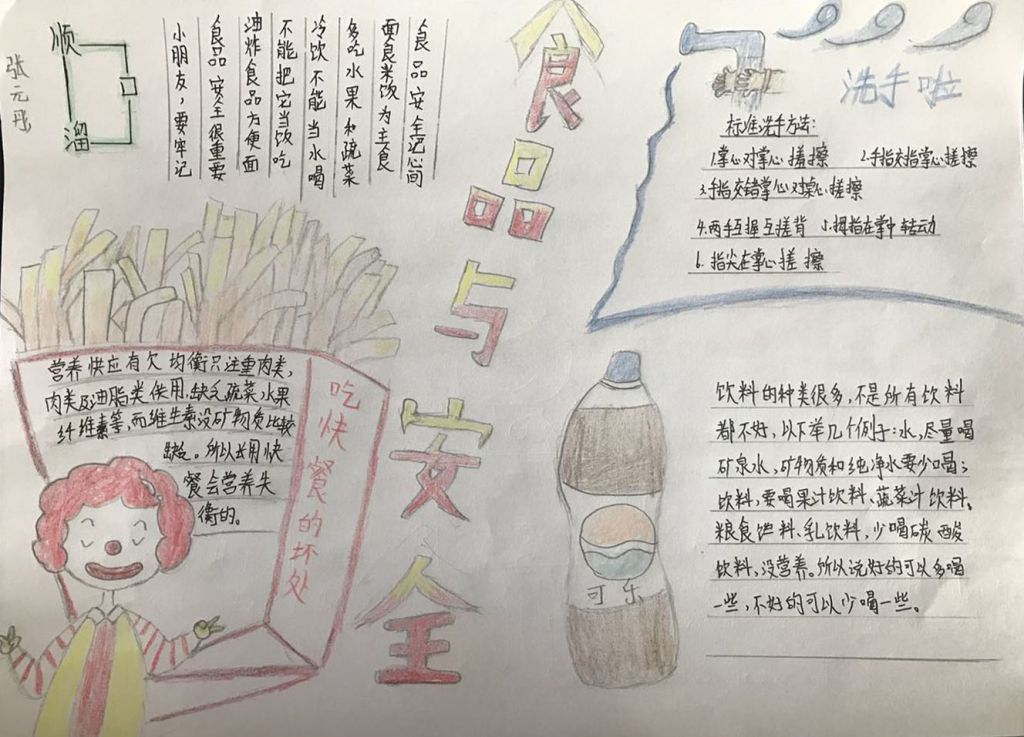 食品与安全
张元彤
顺口溜
食品安全记心间
面食米饭为主食
多吃水果和蔬菜
冷饮不能当水喝
不能把它当饭吃
油炸食品方便面
食品安全很重要
小朋友，要牢记
洗手啦
标准洗手方法：
1.掌心对掌心搓擦 2.手指交指掌心搓擦
3.手指交错掌心对掌心搓擦
4.两手互握互搓背 5.拇指在掌中转动
6.指尖在掌心搓擦
吃快餐的坏处
营养供应有欠均衡只注重肉类，
肉类及油脂类使用，缺乏蔬菜水果
纤维素等，而维生素没矿物质比较
缺。所以长用快
餐会营养失
衡的。
可乐
饮料的种类很多，不是所有饮料
都不好，以下举几个例子：水，尽量喝
矿泉水，矿物质和纯净水要少喝；
饮料，要喝果汁饮料、蔬菜汁饮料、
粮食饮料、乳饮料，少喝碳酸
饮料，没营养。所以说好的可以多喝
一些，不好的可以少喝一些。